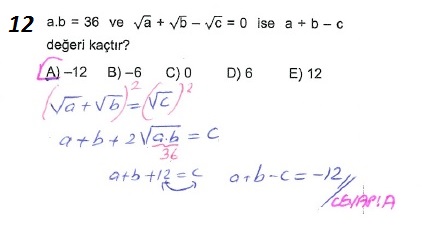 12 a.b = 36 ve √a + √b − √c = 0 ise a + b − c
değeri kaçtır?
A) −12 B) −6 C) 0 D) 6 E) 12
(√a + √b)² = (√c)²
a + b + 2√a.b = c
36
a+b+12 = c a+b−c = −12
CEVAP: A